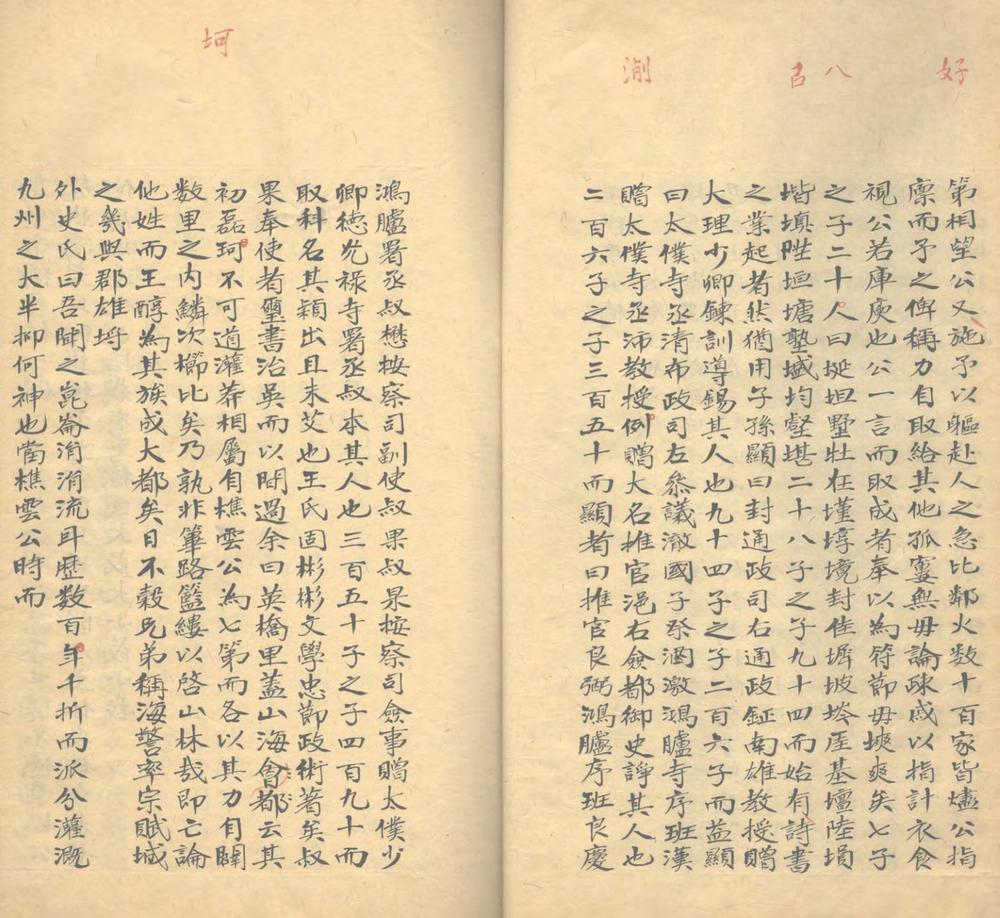 好
八
吕
渆
第相望公又施予以軀赴人之急比鄰火数十百家皆燼公指
廪而予之俾稱力自取給其他孤寠無毋論疎戚以指計衣食
視公若庫庾也公一言而取成者奉以為符節毋爽矣七子
之子二十人曰埏坦墅牡在墐埻境封佳墀坡坽垕基壇陸塤
堦填陞垣塘塾域均壑堪二十八子之子九十四而始有詩書
之業起者然猶用子孫顯曰封通政司右通政鉦南雄教授贈
大理少卿鍊訓導錫其人也九十四子之子二百六子而益顯
曰太僕寺丞清布政司左叅議澈國子祭酒激鴻臚寺序班漢
贈太僕寺丞沛教授例贈大名推官浥右僉都御史諍其人也
二百六子之子三百五十而顯者曰推官良弼鴻臚序班良慶
坷
鴻臚署丞叔懋按察司副使叔果叔杲按察司僉事贈太僕少
卿德光禄寺署丞叔本其人也三百五十子之子四百九十而
取科名其穎出且未艾也王氏固彬彬文學忠節政術著矣叔
果奉使者璽書治吳而以間過余曰英橋里盖山海會都云其
初磊珂不可道灌莽相屬自樵雲公為七第而各以其力自闢
数里之内鱗次櫛比矣乃孰非篳路籃縷以啓山林哉即亡論
他姓而王醇為其族成大都矣日不穀兄弟稱海警率宗賦城
之幾與郡雄埒
外史氏曰吾聞之崑崙涓涓流耳歷数百年千折而派分灌溉
九州之大半抑何神也當樵雲公時而